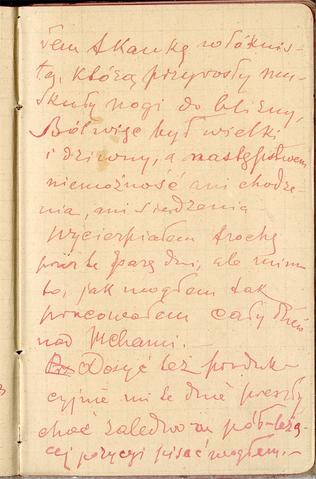 rem tkanką włóknis-
tą, którą przyrosły mu-
skuły nogi do blizny,
Ból więc był wielki
i dziwny, a następstwem
niemożność ani chodze-
nia, ani siedzenia
Wycierpiałem trochę
przez te parę dni, ale mimo
to, jak mogłem tak
pracowałem cały dzień
nad Mchami. —
Dosyć też produk-
cyjnie mi te dnie przeszły
choć zaledwo w pół-leżą-
cej pozycyi pisać mogłem. —